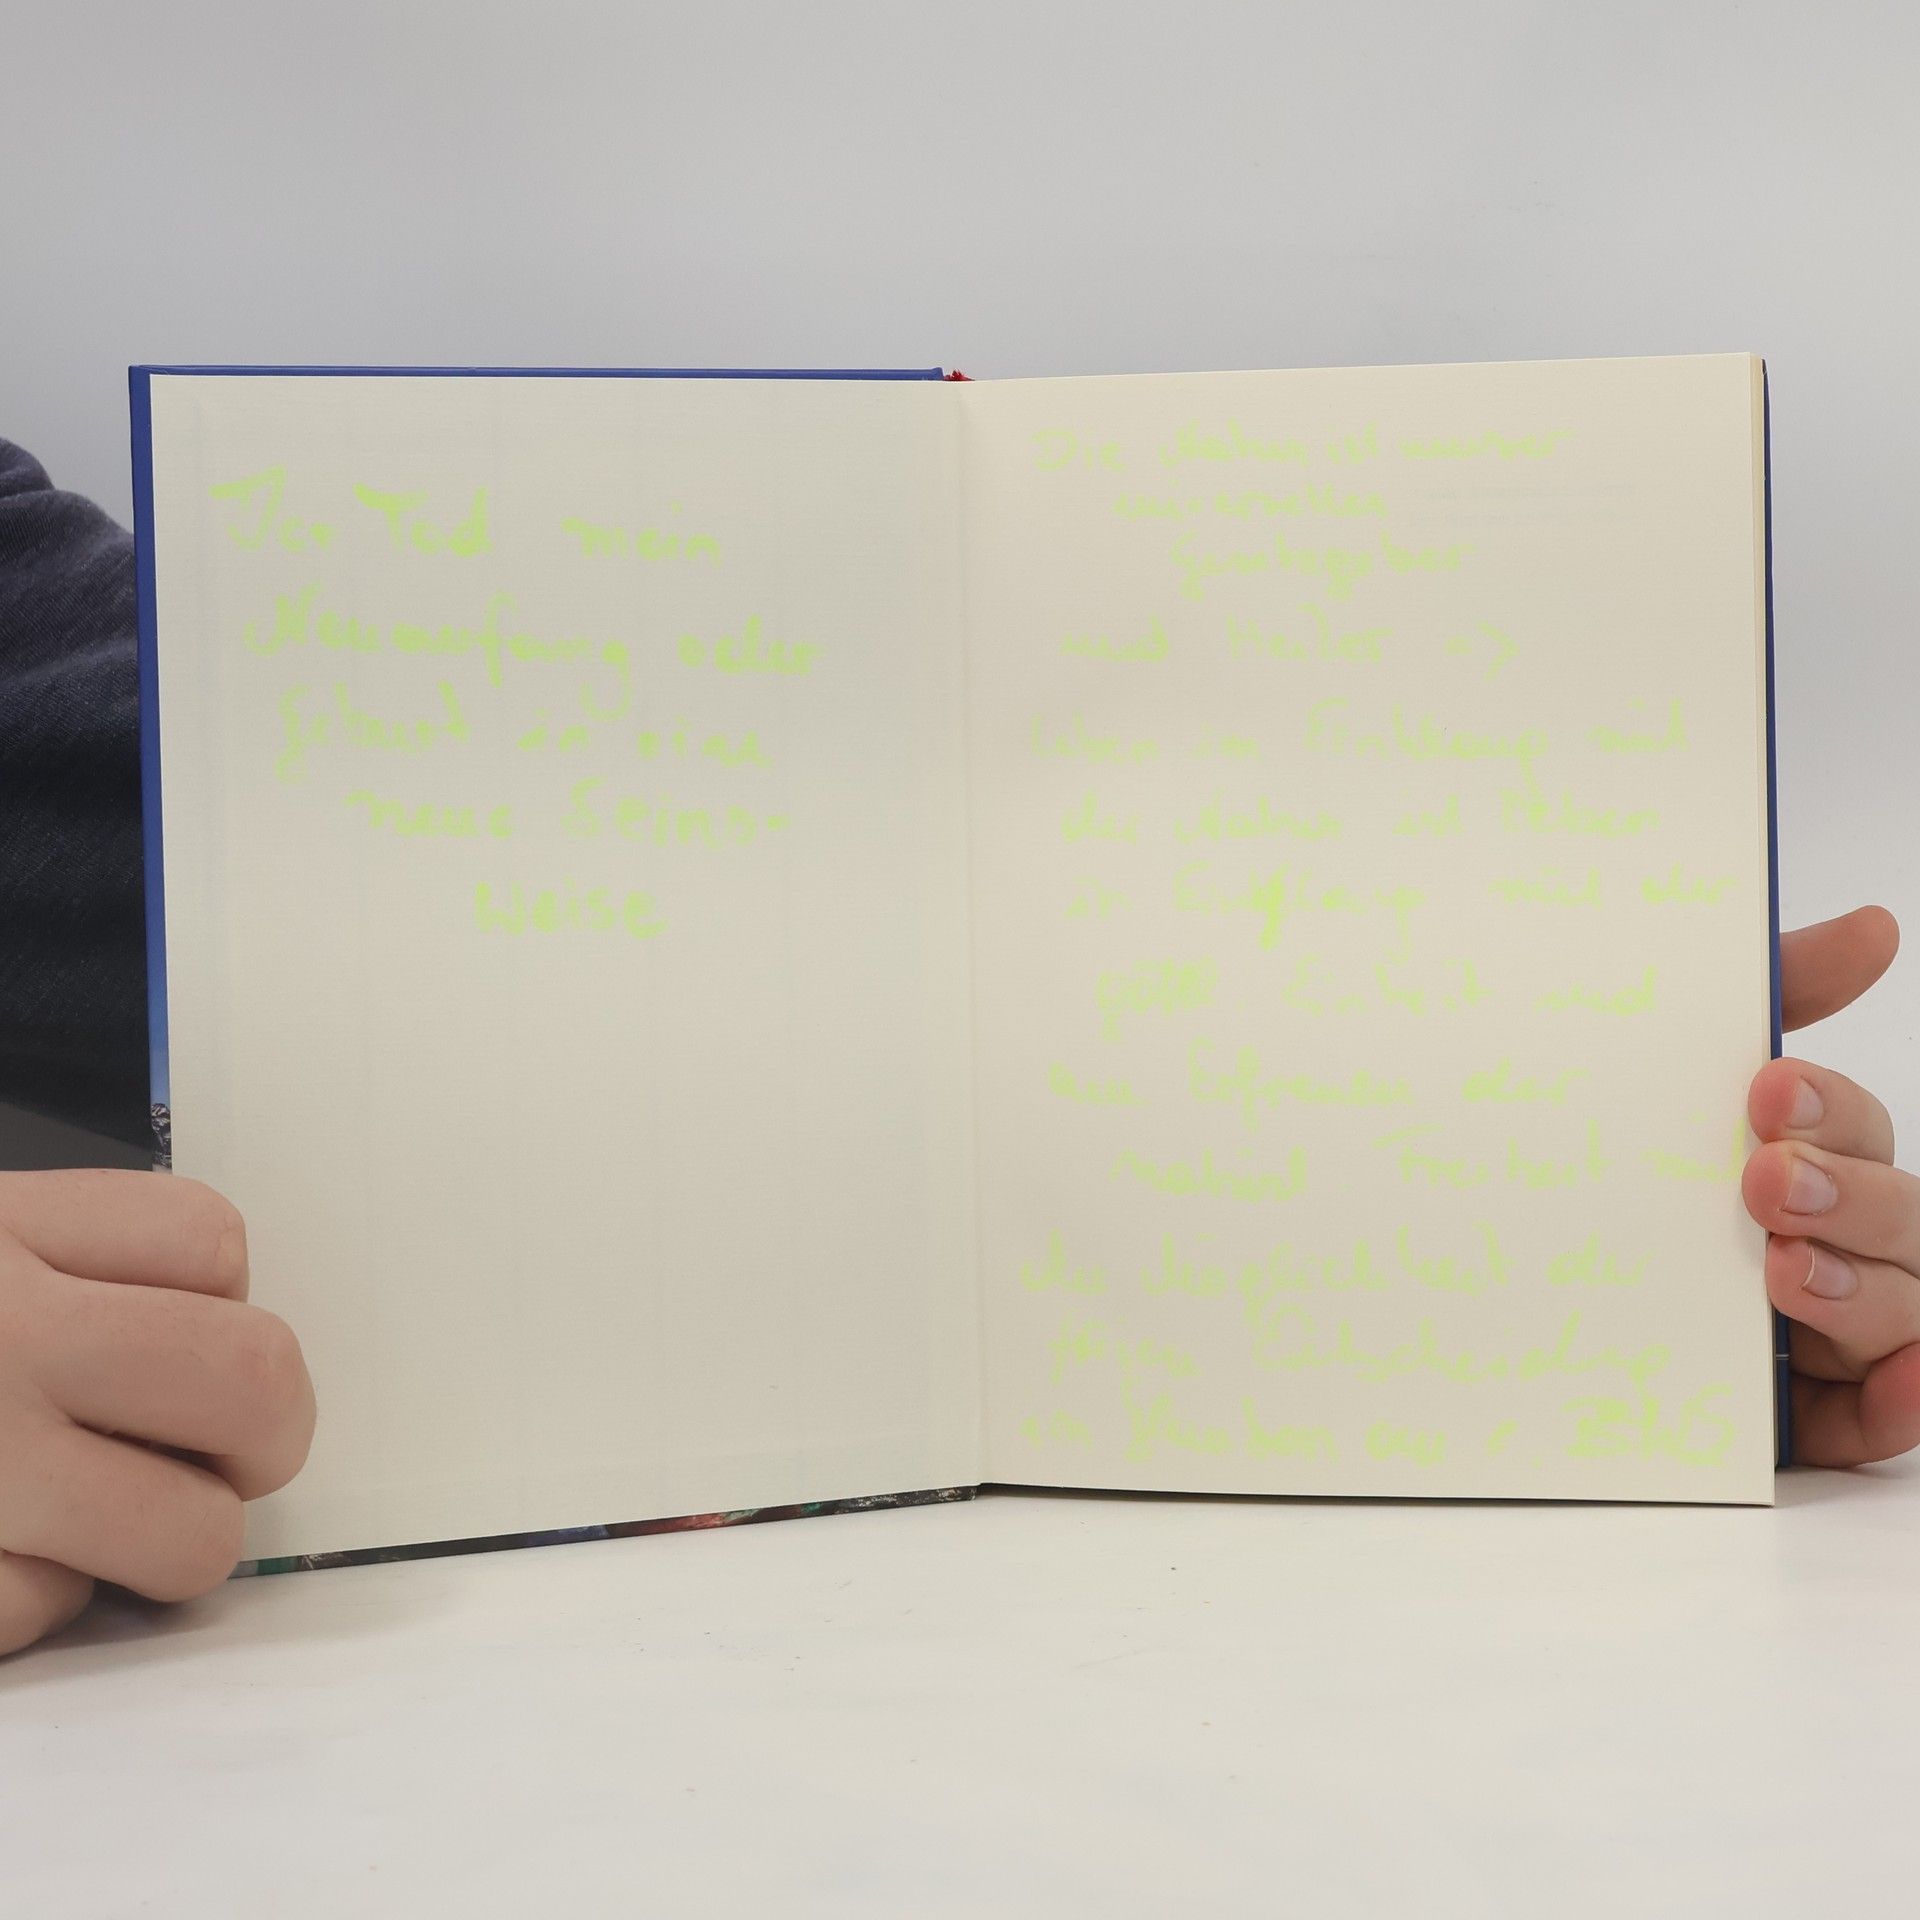 Der Tod mein
Neuanfang oder
Geburt in eine
neue Seins-
Weise
Die Natur ist unser
universeller
Gesetzgeber
und Heiler =>
Leben im Einklang mit
der Natur ist Leben
in Einklang mit der
göttl. Einheit und
am Erfreuen der
natürl. Freiheit mit
der Möglichkeit der
Entscheidung
im Glauben an